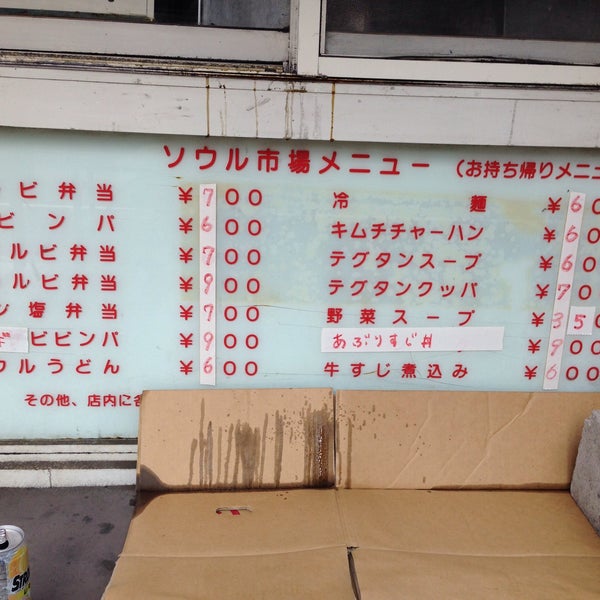 ソウル市場メニュー (お持ち帰りメニュ
ビ弁当 ¥700
ビンパ ¥600
ルビ弁当 ¥700
ルビ弁当 ¥900
塩弁当 ¥700
ビビンパ ¥900
ウルうどん ¥600
その他、店内に各
冷麺 ¥60
キムチチャーハン ¥60
テグタンスープ ¥60
テグタンクッパ ¥70
野菜スープ ¥350
あぶりすじ丼 ¥900
牛すじ煮込み ¥600
STR